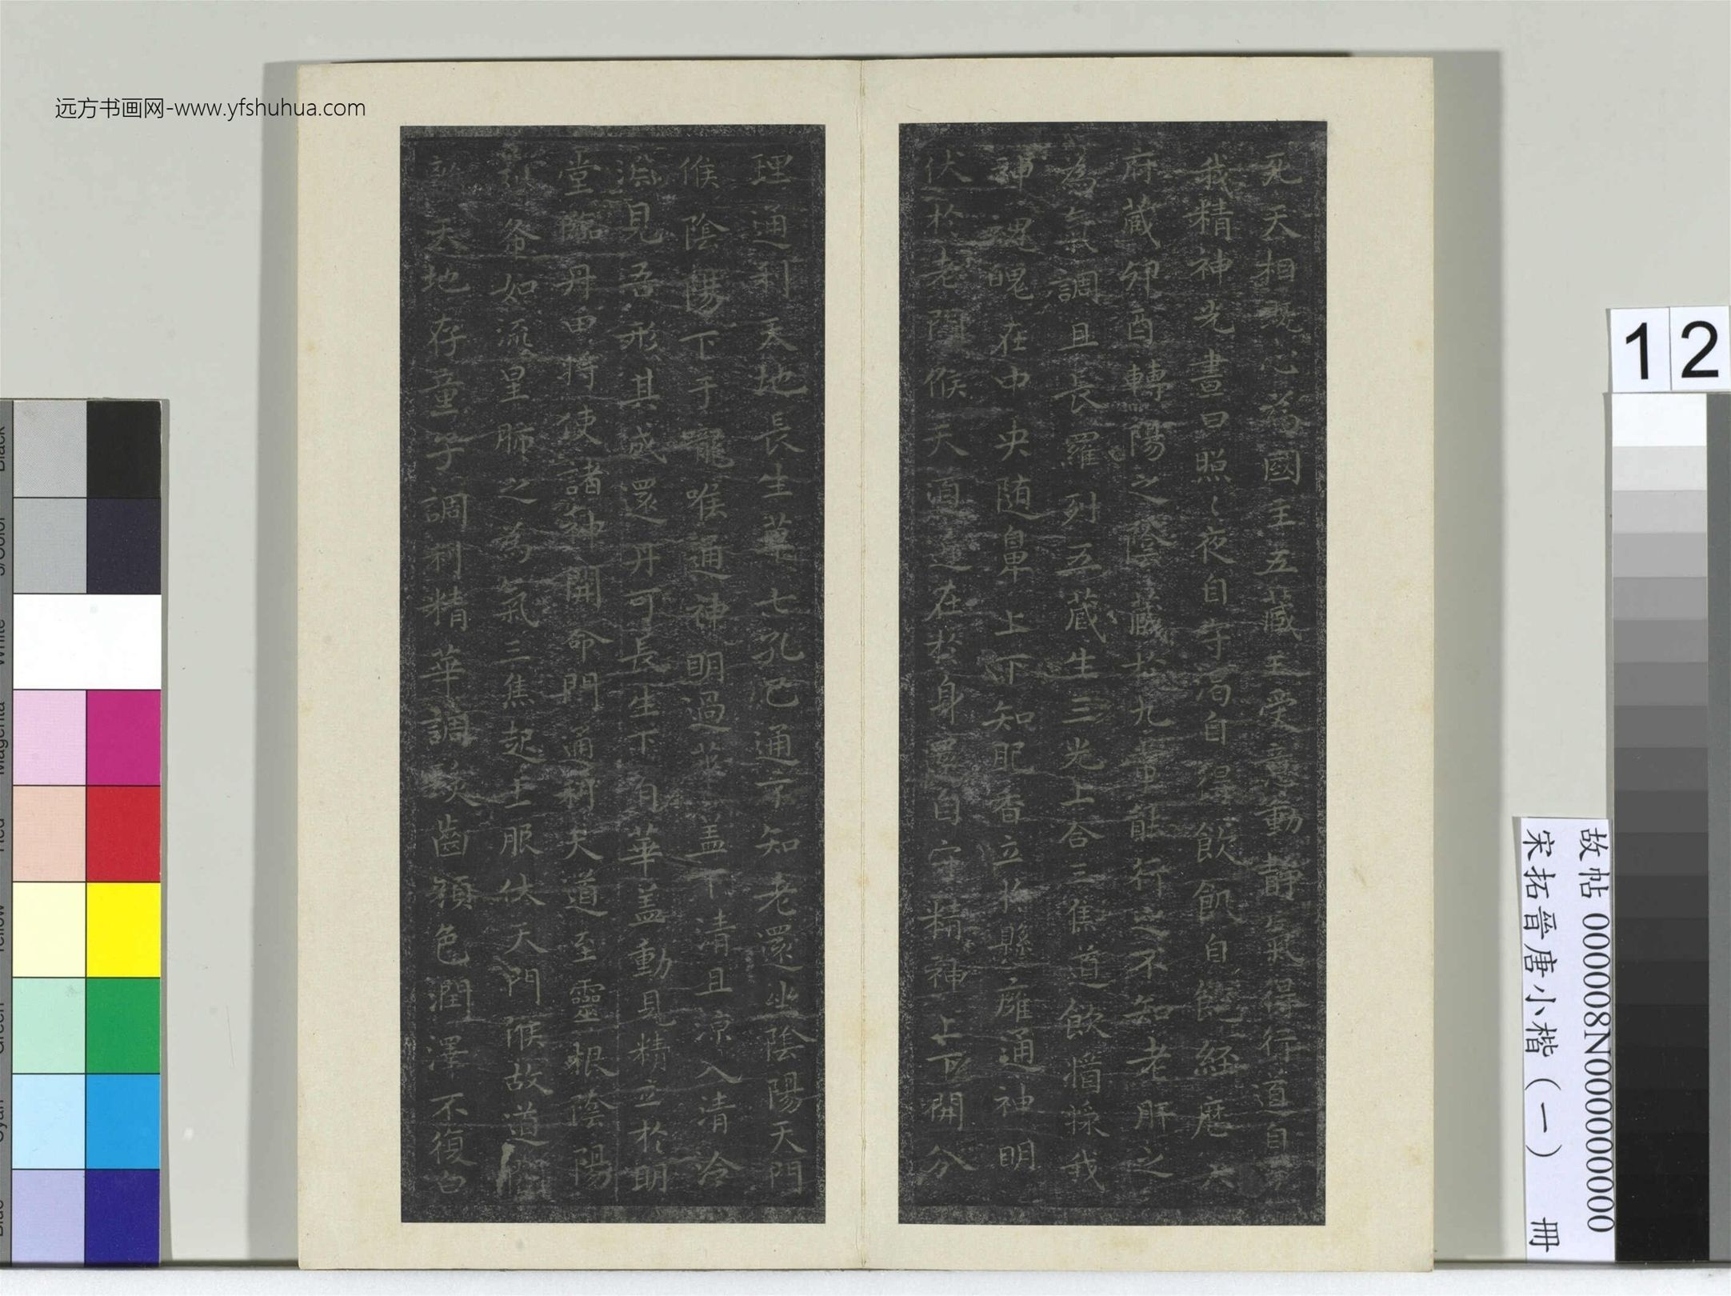 远方书画网-www.yfshuhua.com
死天相既心為國主五藏王受意動靜氣得行道自
我精神光晝日照〻夜自守渴自得飲飢自飽經歷六
府藏卯酉轉陽之陰藏於九常能行之不知老肝之
為氣調且長羅列五藏生三光上合三焦道飲醬㨾我
神魂魄在中央随鼻上下知肥香立於懸廱通神明
伏於老門候天道近在於身還自守精神上下開分
理通利天地長生草七孔已通不知老還坐陰陽天門
候陰陽下于嚨喉通神明過華盖下清且凉入清泠
淵見吾形其成還丹可長生下有華盖動見精立於明
堂臨丹田將使諸神開命門通利天道至靈根陰陽
列布如流星肺之為氣三焦起上服伏天門候故道
天地存童子調利精華調髮齒顏色潤澤不復白
12
故帖 000008N000000000
宋拓晉唐小楷（一） 冊
Black
3/Color
White
Magenta
Red
Yellow
Green
Cyan
Blue